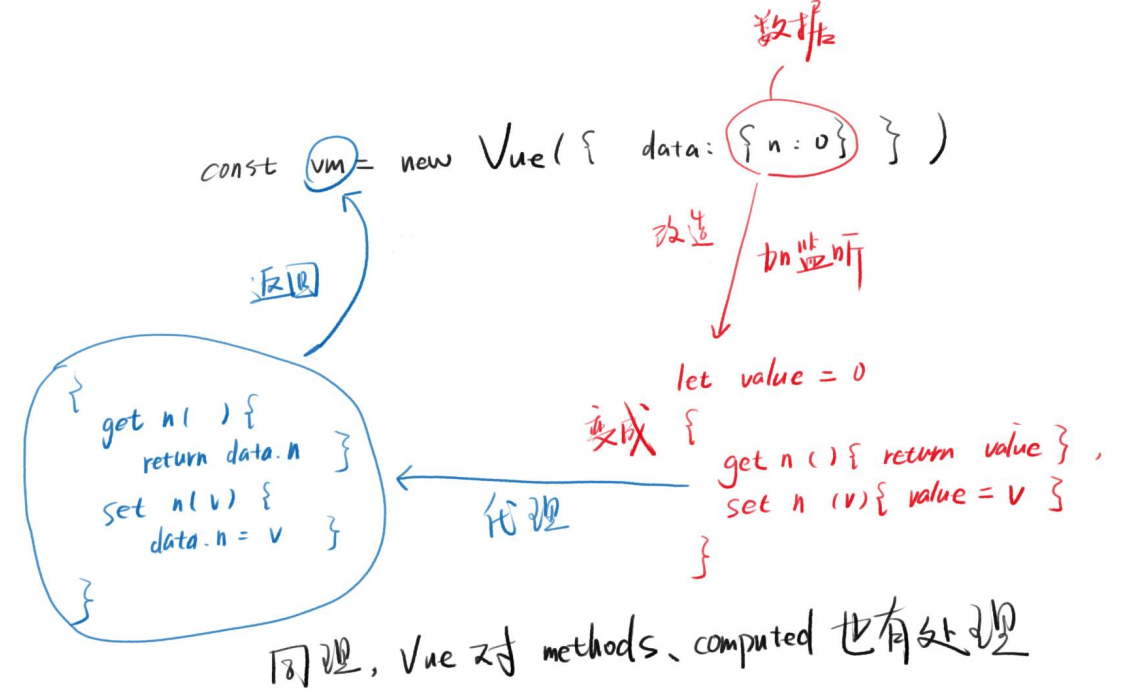 数据
const vm = new Vue({ data: { n : 0 } })
改造
加监听
返回
let value = 0
变成 {
get n() { return value } ,
set n (v) { value = v }
}
代理
{
get n( ) {
return data.n }
set n(v) {
data.n = v }
}
同理, Vue 对 methods、computed 也有处理